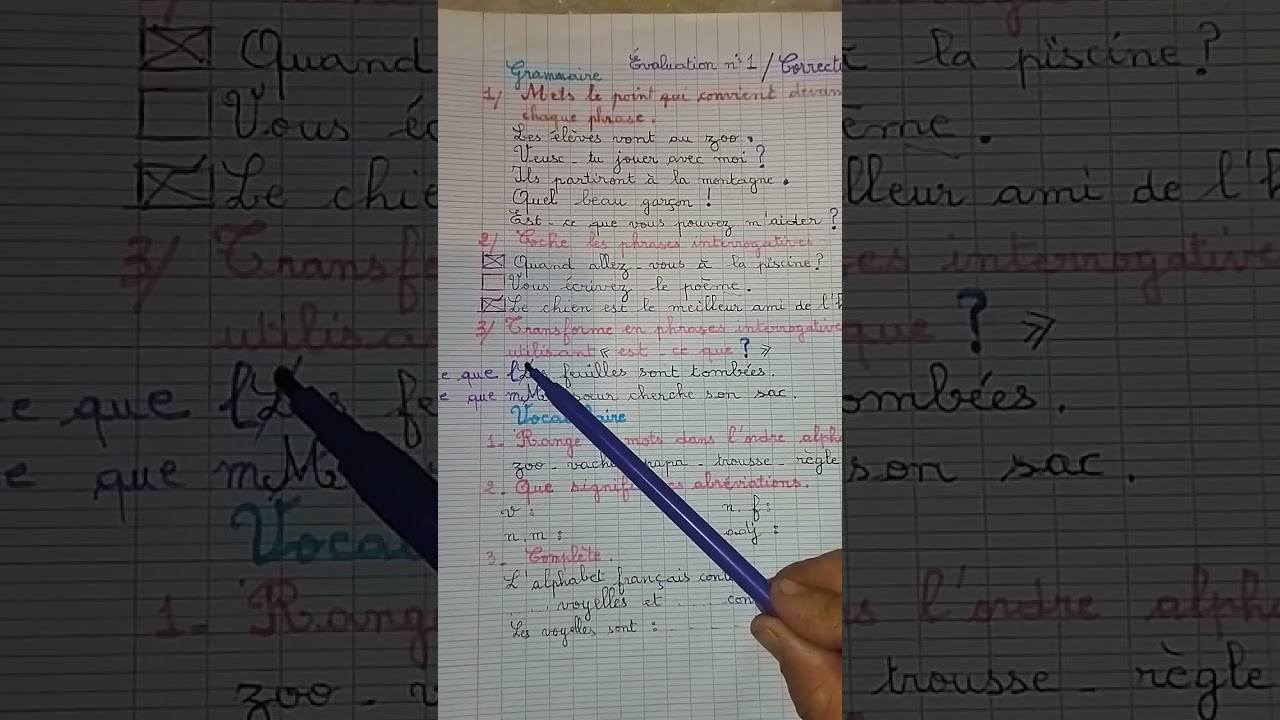 Évaluation n°1 / Correcti
Grammaire
1/ Mets le point qui convient devan
chaque phrase.
Les élèves vont au zoo.
Veux-tu jouer avec moi ?
Ils partiront à la montagne.
Quel beau garçon !
Est-ce que vous pouvez m'aider ?
2/ Coche les phrases interrogatives
Quand allez-vous à la piscine ?
Vous écrivez le poème.
Le chien est le meilleur ami de l'h
3/ Transforme en phrases interrogative
utilisant « est-ce que ? »
e que l feuilles sont tombées.
e que m sœur cherche son sac.
Vocabulaire
1. Range mots dans l'ordre alpha
zoo - vache papa - trousse - règle
2. Que signifi es abréviations.
v : n.f :
n.m : adj :
3. Complète.
L'alphabet français con
.... voyelles et .... con
Les voyelles sont : - - - -